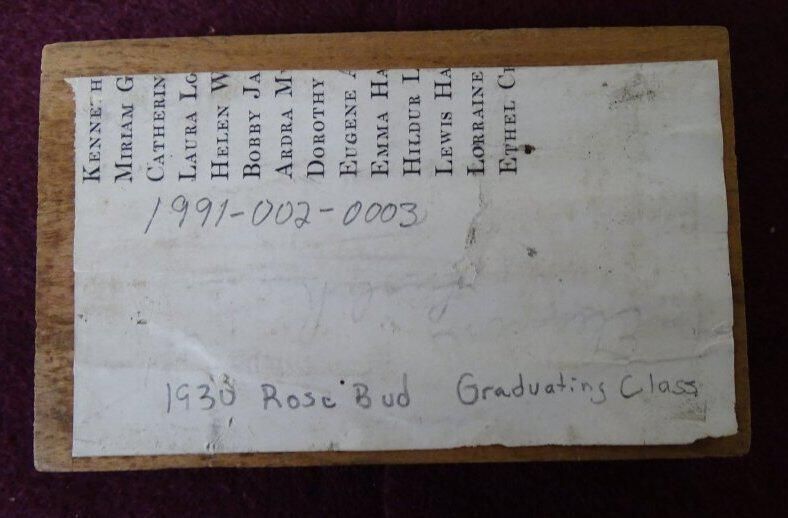 KENNETH
MIRIAM G
CATHERIN
LAURA LO
HELEN W
BOBBY JA
ARDRA M
DOROTHY
EUGENE A
EMMA HA
HILDUR L
LEWIS HA
LORRAINE
ETHEL C
1991-002-0003
1930 Rose Bud Graduating Class